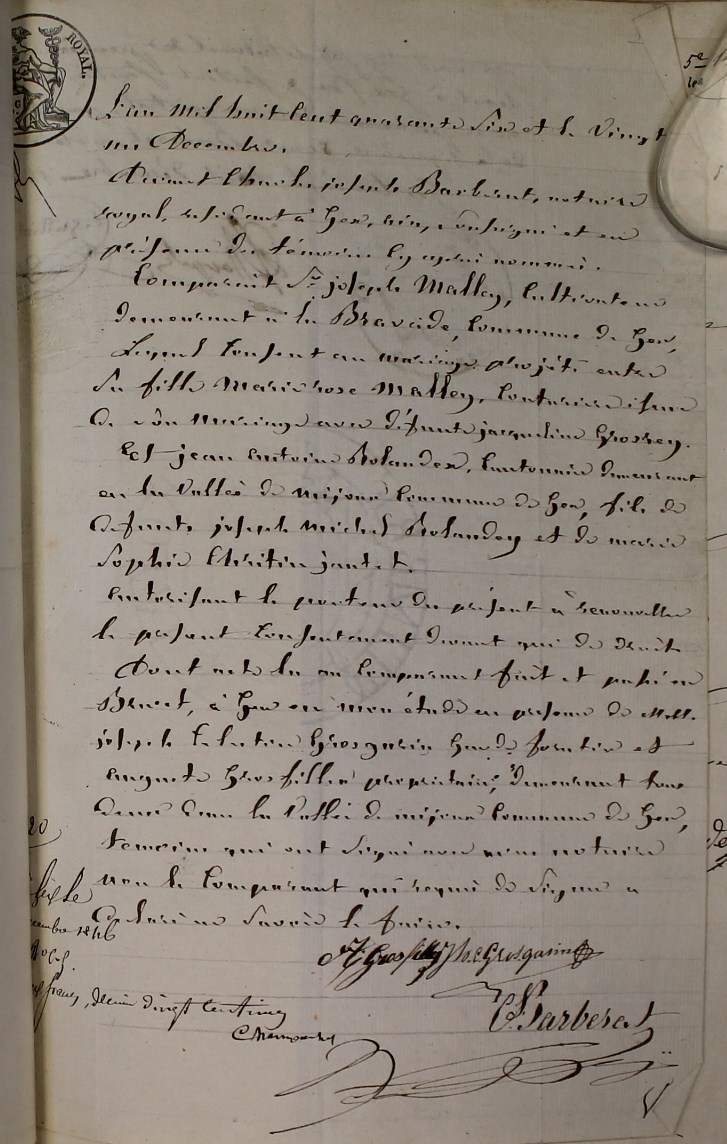 ROYAL.
5e
L'an mil huit cent quarante six et le vingt
un Decembre.
Devant Charles joseph Barberat, notaire
royal, residant à Gex, ain, soussigné et en
présence des témoins cy après nommés.
Comparait Sr. joseph Malley, cultivateur
demeurant à la Bravaide, Commune de Gex,
Lequel Consent au mariage projeté entre
Sa fille Marie rose Malley, Couturière issue
de Son mariage avec défunte jacqueline Grosrey.
Et jean antoine Rolandez, Cantonnier demeurant
en la Vallée de mijoux Commune de Gex, fils de
defunts joseph michel Rolandez et de marie
Sophie Chritin jantet.
autorisant le porteur du présent à renouveller
le présent Consentement devant qui de droit.
Dont acte lu au Comparant fait et passé en
Brevet, à Gex en mon étude en présence de MM.
joseph Celestin Grosgurin Garde forestier et
auguste Grosfilley propriétaire, demeurant tous
deux dans la Vallée de mijoux Commune de Gex,
temoins qui ont Signé avec nous notaire
non le Comparant qui requis de Signer a
declaré ne Savoir le faire.
A Grosfilley Jh C Grosgurin
C J Barberat
20
Gex le
decembre 1846
francs, décime vingt centimes